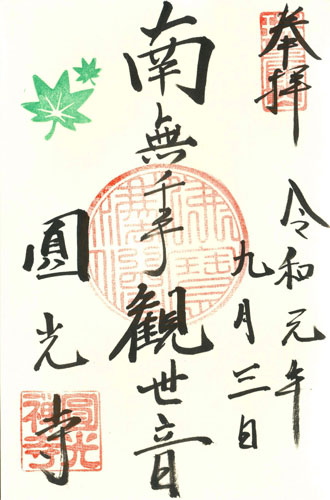 奉拝
令和元年
九月三日
南無千手観世音
圓光寺
圓光
禅寺